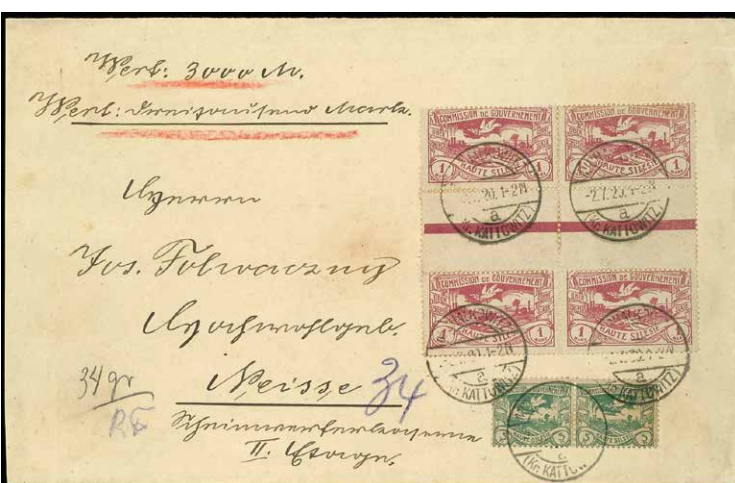 Wert: 3000 M.
Wert: dreitausend Mark.
Herrn
Jos.
Hochwohlgeb.
Neisse
Scheinwerferkaserne
II. Etage.
34 gr
34
COMMISSION DE GOUVERNEMENT
HAUTE SILESIE
1 1
COMMISSION DE GOUVERNEMENT
HAUTE SILESIE
1 1
20.1-2N
a
(Kr. KATTOWITZ)
-2.7.20.1-2N
a
(Kr. KATTOWITZ)
COMMISSION DE GOUVERNEMENT
HAUTE SILESIE
1 1
COMMISSION DE GOUVERNEMENT
HAUTE SILESIE
1 1
a
(Kr. KATTOWITZ)
a
(Kr. KATTOWITZ)
5 5
5 5
(Kr. KATTOW